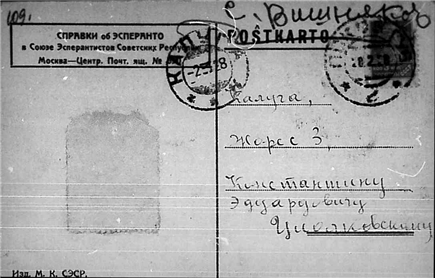 109.
С. Вишняков
СПРАВКИ об ЭСПЕРАНТО
в Союзе Эсперантистов Советских Республик
Москва—Центр. Почт. ящ. №
POSTKARTO
КАЛУГА
-2.5.28
Калуга,
Жорес 3,
Константину
Эдуардовичу
Циолковскому
Изд. М. К. СЭСР.